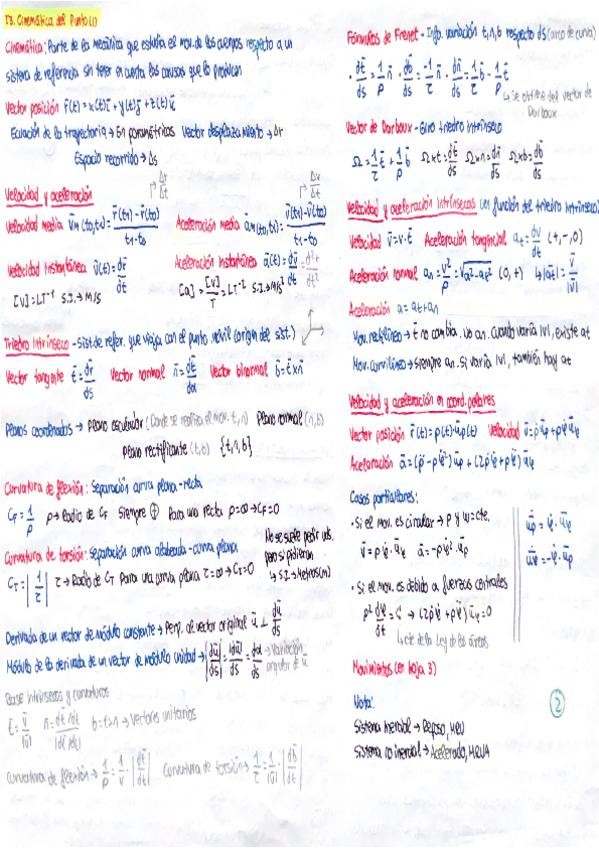 T3. Cinemática del Punto (1)
Cinemática: Parte de la mecánica que estudia el mov. de los cuerpos respecto a un
sistema de referencia sin tener en cuenta las causas que lo producen
Vector posición r̄(t)=x(t)ī+y(t)j̄+z(t)k̄
Ecuación de la trayectoria → En paramétricas Vector desplazamiento → Δr
Espacio recorrido → Δs
Velocidad y aceleración
Velocidad media v̄m(t0,t1) = r̄(t1)-r̄(t0) / t1-t0 → Δr/Δt
Aceleración media ām(t0,t1) = v̄(t1)-v̄(t0) / t1-t0 → Δv/Δt
Velocidad instantánea v̄(t) = dr̄/dt
Aceleración instantánea ā(t) = dv̄/dt = d²r̄/dt²
[v] = LT⁻¹ S.I. → m/s
[a] = [v]/T = LT⁻² S.I. → m/s²
Triedro intrínseco - Sist. de refer. que viaja con el punto móvil (origen del sist.)
Vector tangente t̄ = dr̄/ds Vector normal n̄ = dt̄/dα Vector binormal b̄ = t̄×n̄
Planos coordenados → Plano osculador (Donde se realiza el mov. t,n) Plano normal (n,b)
Plano rectificante (t,b) {t,n,b}
Curvatura de flexión: Separación curva plana-recta
CF = 1/ρ ρ → Radio de CF Siempre ⊕ Para una recta ρ=∞ → CF=0
Curvatura de torsión: Separación curva alabeada-curva plana
CT = |1/τ| τ → Radio de CT Para una curva plana τ=∞ → CT=0
No se suele pedir uds,
pero si pidieran
↳ S.I. → metros (m)
Derivada de un vector de módulo constante → Perp. al vector original ū ⊥ dū/ds
Módulo de la derivada de un vector de módulo unidad → |dū/ds| = |dū|/ds = dα/ds → Variación
angular de ū
Base intrínseca y curvaturas
t̄ = v̄/|v̄| n̄ = dt̄/dt / |dt̄/dt| b = t×n → Vectores unitarios
Curvatura de flexión → 1/ρ = 1/v · |dt̄/dt| Curvatura de torsión → 1/τ = 1/|v̄| · |db̄/dt|
Fórmulas de Frenet - Info. variación t,n,b respecto ds (arco de curva)
· dt̄/ds = 1/ρ n̄ · db̄/ds = -1/τ n̄ · dn̄/ds = 1/τ b̄ - 1/ρ t̄
↳ Se obtiene del vector de
Darboux
Vector de Darboux - Giro triedro intrínseco
Ω = 1/τ t̄ + 1/ρ b̄ Ω×t = dt̄/ds Ω×n = dn̄/ds Ω×b = db̄/ds
Velocidad y aceleración intrínsecas (en función del triedro intrínseco)
Velocidad v̄ = v·t̄ Aceleración tangencial at = dv/dt (+,-,0)
Aceleración normal an = v²/ρ = √a²-at² (0,+)
Aceleración a = at+an
Mov. rectilíneo → t̄ no cambia. No an. Cuando varía |v|, existe at
Mov. curvilíneo → Siempre an. Si varía |v|, también hay at
Velocidad y aceleración en coord. polares
Vector posición r̄(t) = ρ(t)·ūρ(t) Velocidad v̄ = ρ̇ ūρ + ρφ̇ ūφ
Aceleración ā = (ρ̈ - ρφ̇²) ūρ + (2ρ̇φ̇ + ρφ̈) ūφ
Casos particulares:
· Si el mov. es circular → ρ y ω = cte.
v̄ = ρφ̇·ūφ ā = -ρφ̇²·ūρ
· Si el mov. es debido a fuerzas centrales
ρ² dφ/dt = C → (2ρ̇φ̇ + ρφ̈) ūφ = 0
↳ cte de la Ley de las áreas
u̇ρ = φ̇·ūφ
u̇φ = -φ̇·ūρ
Movimientos (en hoja 3)
Nota:
Sistema inercial → Reposo, MRU
Sistema no inercial → Acelerado, MRUA
2